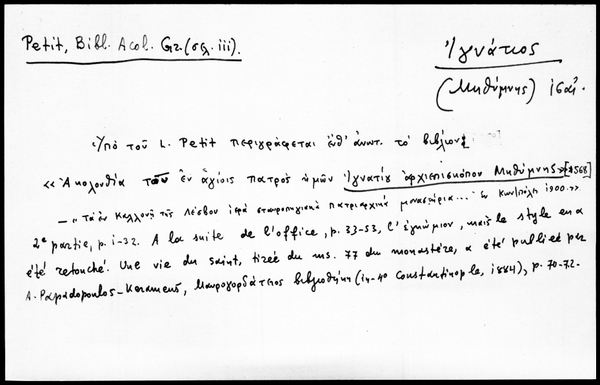 Petit, Bibl. Acol. Gr. (σελ. iii).
Ἰγνάτιος
(Μηθύμνης) ις αἰ.
Ὑπὸ τοῦ L. Petit περιγράφεται ἔνθ' ἀνωτ. τὸ βιβλίον:
«Ἀκολουθία τοῦ ἐν ἁγίοις πατρὸς ἡμῶν Ἰγνατίου ἀρχιεπισκόπου Μηθύμνης» [+1568]
— "Τὰ ἐν Καλλονῇ τῆς Λέσβου ἱερὰ σταυροπηγιακὰ πατριαρχικὰ μοναστήρια... Ἐν Κων/πόλει 1900.»
2e partie, p. 1-32. A la suite de l'office, p. 33-53, l'ἐγκώμιον, mais le style en a
été retouché. Une vie du saint, tirée du ms. 77 du monastère, a été publiée par
A. Papadopoulos-Kerameus, Μαυρογορδάτειος βιβλιοθήκη (in-4o Constantinople, 1884), p. 70-72.